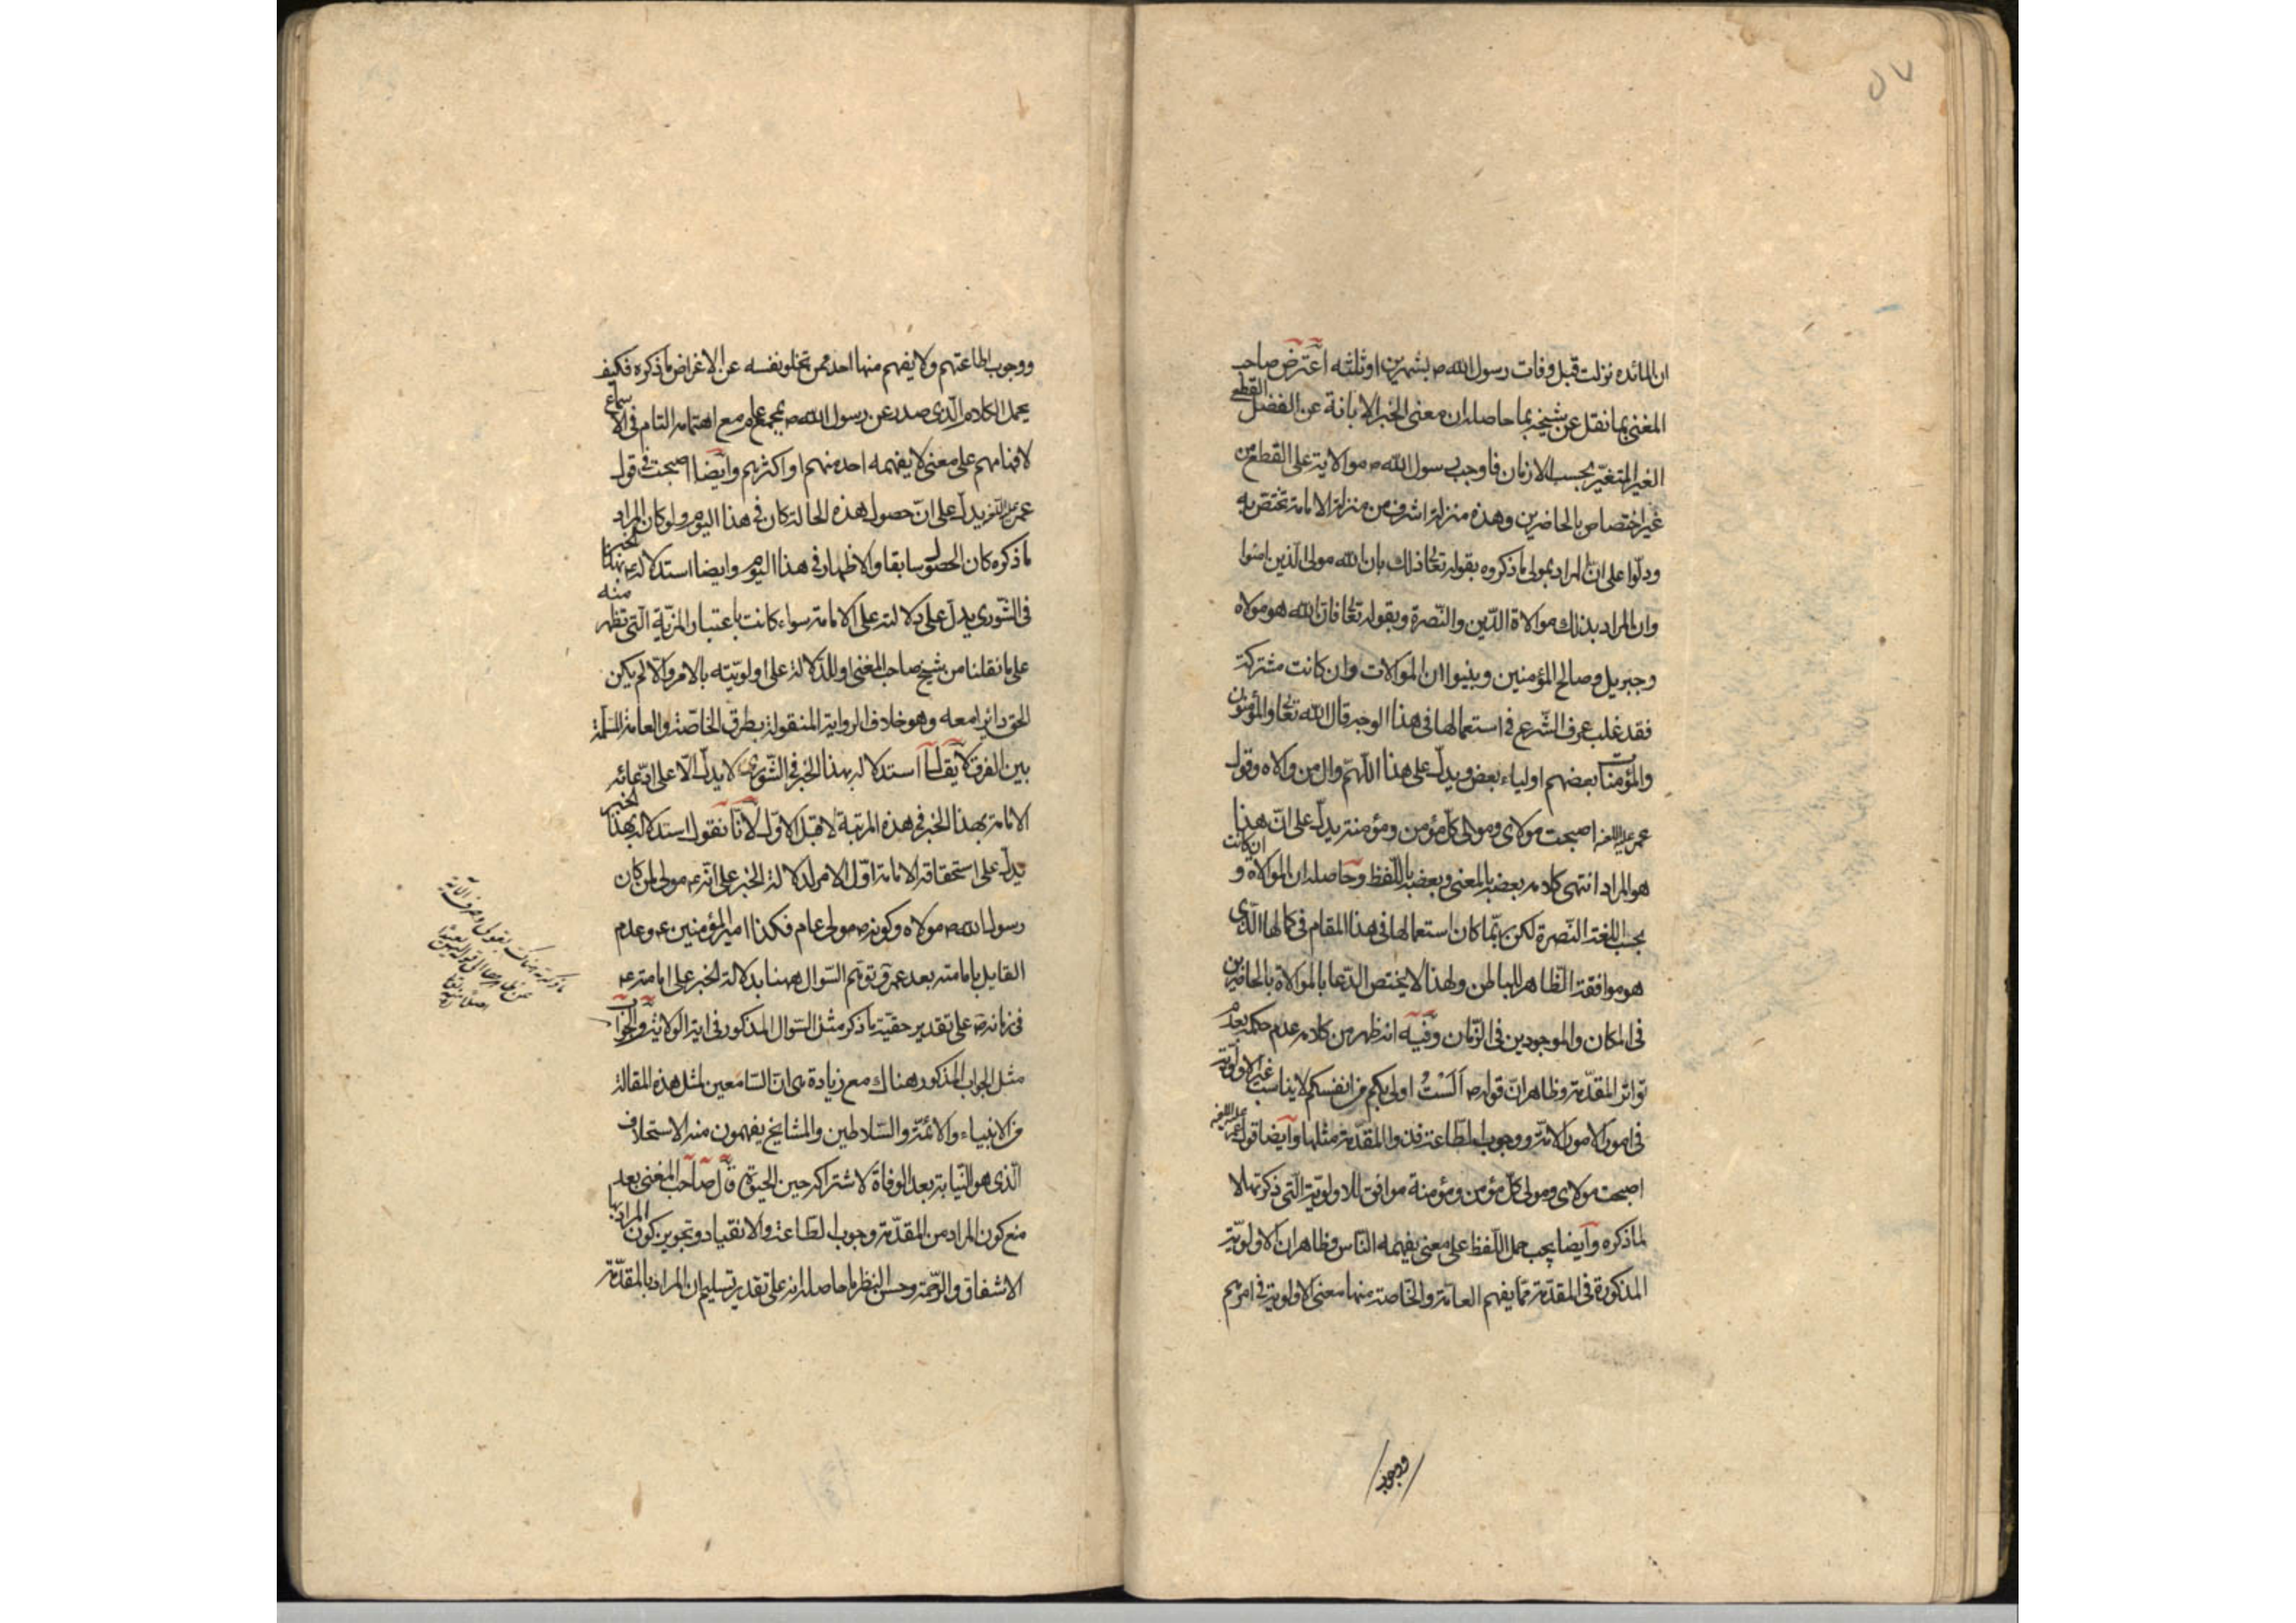 ان المائده نزلت قبل وفات رسول الله ص بشهرين او ثلثه اعترض صاحب
المغنى بما نقل عن شيخيه بما حاصله ان معنى الخبر الابانة عن الفضل القطعى
الغير المتغيّر بحسب الازمان فاوجب رسول الله ص موالاية على القطع من
غير اختصاص بالحاضرين وهذه منزلة اشرف من منزلة الامامة تختص به
ودلّوا على ان المراد بمولى ما ذكروه بقوله تعالى ذلك بان الله مولى الذين امنوا
وان المراد بذلك موالاة الدّين والنّصرة وبقوله تعالى فان الله هو مولاه
وجبريل وصالح المؤمنين وبينوا ان الموالات وان كانت مشتركة
فقد غلب عرف الشّرع فى استعمالها فى هذا الوجه قال الله تعالى والمؤمنون
والمؤمنات بعضهم اولياء بعض ويدلّ على هذا اللّهمّ وال من والاه وقول
عمر عليه اللعنه اصبحت مولاى ومولى كلّ مؤمن ومؤمنة يدلّ على انّ هذا
هو المراد انتهى كلامه بعضه بالمعنى وبعضه باللّفظ وحاصله ان الموالاة و ان كانت
بحسب اللغة النّصرة لكن ربّما كان استعمالها فى هذا المقام فى كمالها الّذى
هو موافقة الظّاهر للباطن ولهذا لا يختص الدّعا بالموالاة بالحاضرين
فى المكان والموجودين فى الزّمان وفيه انه ظهر من كلامه عدم حكمه بعدم
تواتر المقدّمة وظاهر انّ قوله ص اَلَسْتُ اولى بكم من انفسكم لا يناسب غير الاولويّة
فى امور الامّة ووجوب الطّاعة وان المقدّمة مثلها وايضا قول عمر عليه اللعنه
اصبحت مولاى ومولى كلّ مؤمن ومؤمنة موافق للاولويّة الّتى ذكرتها لا
لما ذكره وايضا يجب حمل اللّفظ على معنى يفهمه النّاس وظاهر ان الاولويّة
المذكورة فى المقدّمة ممّا يفهم العامّة والخاصّة منها معنى الاولوية فى امرهم
وجوب
ووجوب اطاعتهم ولا يفهم منها احد ممن تخلو نفسه عن الاغراض ما ذكره فكيف
يحمل الكلام الّذى صدر عن رسول الله ص بمجمع عام مع اهتمامه التام فى الاسماع
لافهامهم على معنى لا يفهمه احد منهم او اكثرهم وايضا اصبحت فى قول
عمر عليه اللعنه يدلّ على انّ حصول هذه الحالة كان فى هذا اليوم ولو كان المراد
ما ذكره كان الحصول سابقا والاظهار فى هذا اليوم وايضا استدلاله ع بهذا الخبر
فى الشّورى يدلّ على دلالته على الامامة سواء كانت باعتبار المزيّة الّتى تظهر منه
على ما نقلنا من شيخ صاحب المغنى او للدّلالة على اولويّته بالامر والّا لم يكن
الحق دائرا معه وهو خلاف الرواية المنقولة بطرق الخاصّة والعامة المسلّمة
بين الفرق لا يقال استدلاله بهذا الخبر فى الشّورى لا يدلّ الّا على ادّعائه
الامامة بهذا الخبر فى هذه المرتبة لا قبل الاوّل لانّا نقول استدلاله بهذا الخبر
يدلّ على استحقاقه الامامة اوّل الامر لدلالة الخبر على انّه ع مولى لمن كان
رسول الله ص مولاه وكونه ص مولى عام فكذا امير المؤمنين ع وعدم
القايل بامامته بعد عمر وتوهّم السّوال ههنا بدلالة الخبر على امامته ع
فى زمانه ص على تقدير حقيّة ما ذكر مثل السّوال المذكور فى اية الولاية والجواب
مثل الجواب المذكور هناك مع زيادة هى انّ السّامعين لمثل هذه المقالة
من الانبياء والائمّة والسّلاطين والمشايخ يفهمون منه الاستخلاف
الّذى هو النّيابة بعد الوفاة لا شراكه حين الحيوة قال صاحب المغنى بعد
منع كون المراد من المقدّمة وجوب الطّاعة والانقياد وتجويز كون المراد بها
الاشفاق والرّحمة وحسن النظر ما حاصله انه على تقدير تسليم ان المراد بالمقدّمة